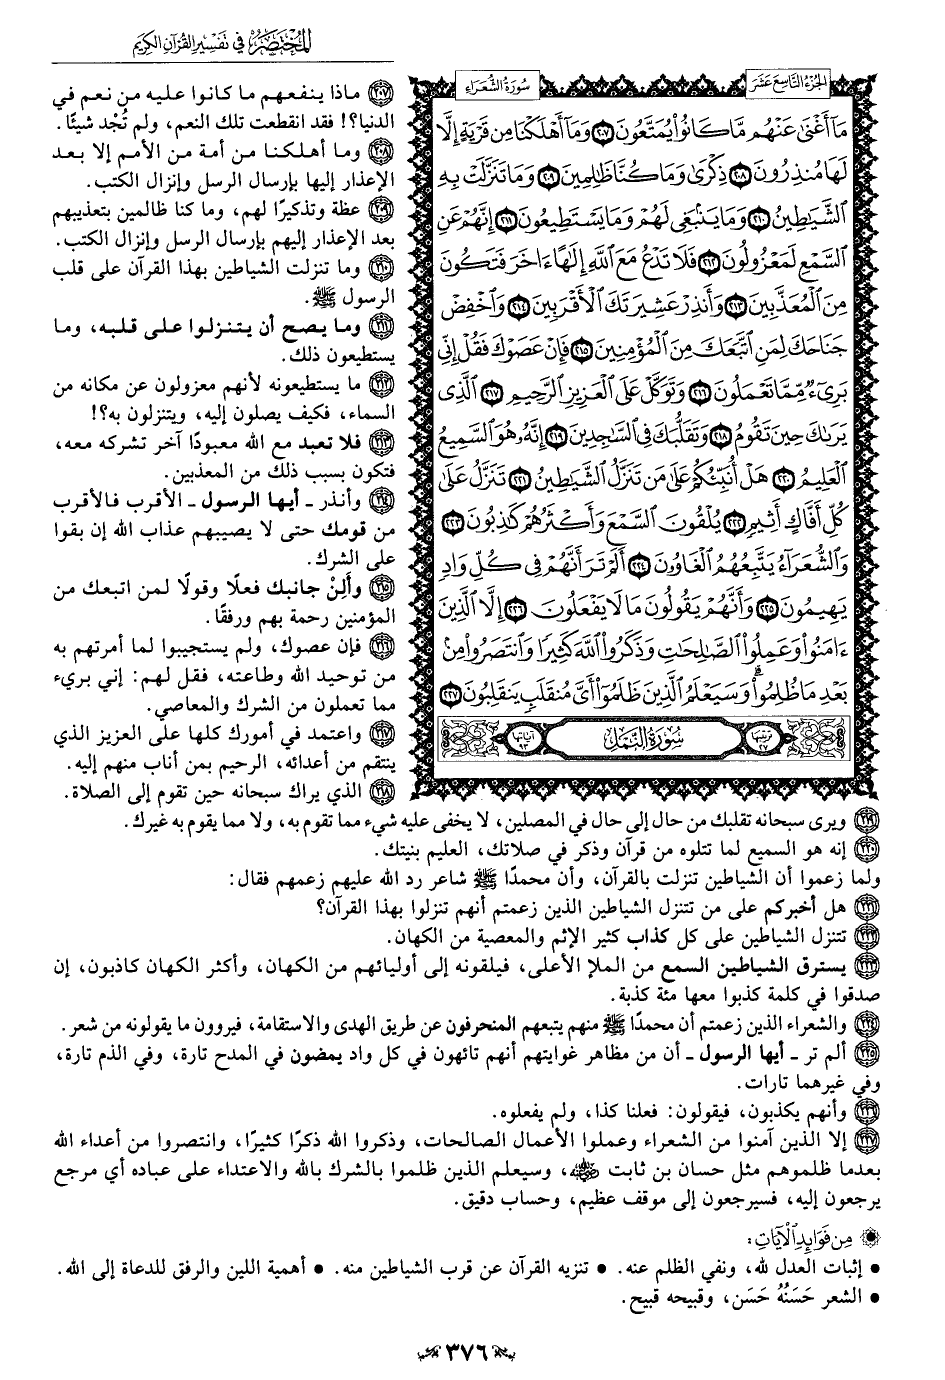 المختصر في تفسير القرآن الكريم
الجزء التاسع عشر
سورة الشعراء
مَآ أَغْنَىٰ عَنْهُم مَّا كَانُوا۟ يُمَتَّعُونَ ٢٠٧ وَمَآ أَهْلَكْنَا مِن قَرْيَةٍ إِلَّا
لَهَا مُنذِرُونَ ٢٠٨ ذِكْرَىٰ وَمَا كُنَّا ظَٰلِمِينَ ٢٠٩ وَمَا تَنَزَّلَتْ بِهِ
ٱلشَّيَٰطِينُ ٢١٠ وَمَا يَنۢبَغِى لَهُمْ وَمَا يَسْتَطِيعُونَ ٢١١ إِنَّهُمْ عَنِ
ٱلسَّمْعِ لَمَعْزُولُونَ ٢١٢ فَلَا تَدْعُ مَعَ ٱللَّهِ إِلَٰهًا ءَاخَرَ فَتَكُونَ
مِنَ ٱلْمُعَذَّبِينَ ٢١٣ وَأَنذِرْ عَشِيرَتَكَ ٱلْأَقْرَبِينَ ٢١٤ وَٱخْفِضْ
جَنَاحَكَ لِمَنِ ٱتَّبَعَكَ مِنَ ٱلْمُؤْمِنِينَ ٢١٥ فَإِنْ عَصَوْكَ فَقُلْ إِنِّى
بَرِىٓءٌ مِّمَّا تَعْمَلُونَ ٢١٦ وَتَوَكَّلْ عَلَى ٱلْعَزِيزِ ٱلرَّحِيمِ ٢١٧ ٱلَّذِى
يَرَىٰكَ حِينَ تَقُومُ ٢١٨ وَتَقَلُّبَكَ فِى ٱلسَّٰجِدِينَ ٢١٩ إِنَّهُۥ هُوَ ٱلسَّمِيعُ
ٱلْعَلِيمُ ٢٢٠ هَلْ أُنَبِّئُكُمْ عَلَىٰ مَن تَنَزَّلُ ٱلشَّيَٰطِينُ ٢٢١ تَنَزَّلُ عَلَىٰ
كُلِّ أَفَّاكٍ أَثِيمٍ ٢٢٢ يُلْقُونَ ٱلسَّمْعَ وَأَكْثَرُهُمْ كَٰذِبُونَ ٢٢٣
وَٱلشُّعَرَآءُ يَتَّبِعُهُمُ ٱلْغَاوُۥنَ ٢٢٤ أَلَمْ تَرَ أَنَّهُمْ فِى كُلِّ وَادٍ
يَهِيمُونَ ٢٢٥ وَأَنَّهُمْ يَقُولُونَ مَا لَا يَفْعَلُونَ ٢٢٦ إِلَّا ٱلَّذِينَ
ءَامَنُوا۟ وَعَمِلُوا۟ ٱلصَّٰلِحَٰتِ وَذَكَرُوا۟ ٱللَّهَ كَثِيرًا وَٱنتَصَرُوا۟ مِنۢ
بَعْدِ مَا ظُلِمُوا۟ ۗ وَسَيَعْلَمُ ٱلَّذِينَ ظَلَمُوٓا۟ أَىَّ مُنقَلَبٍ يَنقَلِبُونَ ٢٢٧
ترتيبها ٢٧
سورة النمل
آياتها ٩٣
٢٠٧ ماذا ينفعهم ما كانوا عليه من نعم في
الدنيا؟! فقد انقطعت تلك النعم، ولم تُجْد شيئًا.
٢٠٨ وما أهلكنا من أمة من الأمم إلا بعد
الإعذار إليها بإرسال الرسل وإنزال الكتب.
٢٠٩ عظة وتذكيرًا لهم، وما كنا ظالمين بتعذيبهم
بعد الإعذار إليهم بإرسال الرسل وإنزال الكتب.
٢١٠ وما تنزلت الشياطين بهذا القرآن على قلب
الرسول ﷺ.
٢١١ وما يصح أن يتنزلوا على قلبه، وما
يستطيعون ذلك.
٢١٢ ما يستطيعونه لأنهم معزولون عن مكانه من
السماء، فكيف يصلون إليه، ويتنزلون به؟!
٢١٣ فلا تعبد مع الله معبودًا آخر تشركه معه،
فتكون بسبب ذلك من المعذبين.
٢١٤ وأنذر ـ أيها الرسول ـ الأقرب فالأقرب
من قومك حتى لا يصيبهم عذاب الله إن بقوا
على الشرك.
٢١٥ وألِنْ جانبك فعلًا وقولًا لمن اتبعك من
المؤمنين رحمة بهم ورفقًا.
٢١٦ فإن عصوك، ولم يستجيبوا لما أمرتهم به
من توحيد الله وطاعته، فقل لهم: إني بريء
مما تعملون من الشرك والمعاصي.
٢١٧ واعتمد في أمورك كلها على العزيز الذي
ينتقم من أعدائه، الرحيم بمن أناب منهم إليه.
٢١٨ الذي يراك سبحانه حين تقوم إلى الصلاة.
٢١٩ ويرى سبحانه تقلبك من حال إلى حال في المصلين، لا يخفى عليه شيء مما تقوم به، ولا مما يقوم به غيرك.
٢٢٠ إنه هو السميع لما تتلوه من قرآن وذكر في صلاتك، العليم بنيتك.
ولما زعموا أن الشياطين تنزلت بالقرآن، وأن محمدًا ﷺ شاعر رد الله عليهم زعمهم فقال:
٢٢١ هل أخبركم على من تتنزل الشياطين الذين زعمتم أنهم تنزلوا بهذا القرآن؟
٢٢٢ تتنزل الشياطين على كل كذاب كثير الإثم والمعصية من الكهان.
٢٢٣ يسترق الشياطين السمع من الملإ الأعلى، فيلقونه إلى أوليائهم من الكهان، وأكثر الكهان كاذبون، إن
صدقوا في كلمة كذبوا معها مئة كذبة.
٢٢٤ والشعراء الذين زعمتم أن محمدًا ﷺ منهم يتبعهم المنحرفون عن طريق الهدى والاستقامة، فيروون ما يقولونه من شعر.
٢٢٥ ألم تر ـ أيها الرسول ـ أن من مظاهر غوايتهم أنهم تائهون في كل واد يمضون في المدح تارة، وفي الذم تارة،
وفي غيرهما تارات.
٢٢٦ وأنهم يكذبون، فيقولون: فعلنا كذا، ولم يفعلوه.
٢٢٧ إلا الذين آمنوا من الشعراء وعملوا الأعمال الصالحات، وذكروا الله ذكرًا كثيرًا، وانتصروا من أعداء الله
بعدما ظلموهم مثل حسان بن ثابت رضي الله عنه، وسيعلم الذين ظلموا بالشرك بالله والاعتداء على عباده أي مرجع
يرجعون إليه، فسيرجعون إلى موقف عظيم، وحساب دقيق.
من فوائد الآيات:
• إثبات العدل لله، ونفي الظلم عنه. • تنزيه القرآن عن قرب الشياطين منه. • أهمية اللين والرفق للدعاة إلى الله.
• الشعر حَسَنُهُ حَسَن، وقبيحه قبيح.
٣٧٦